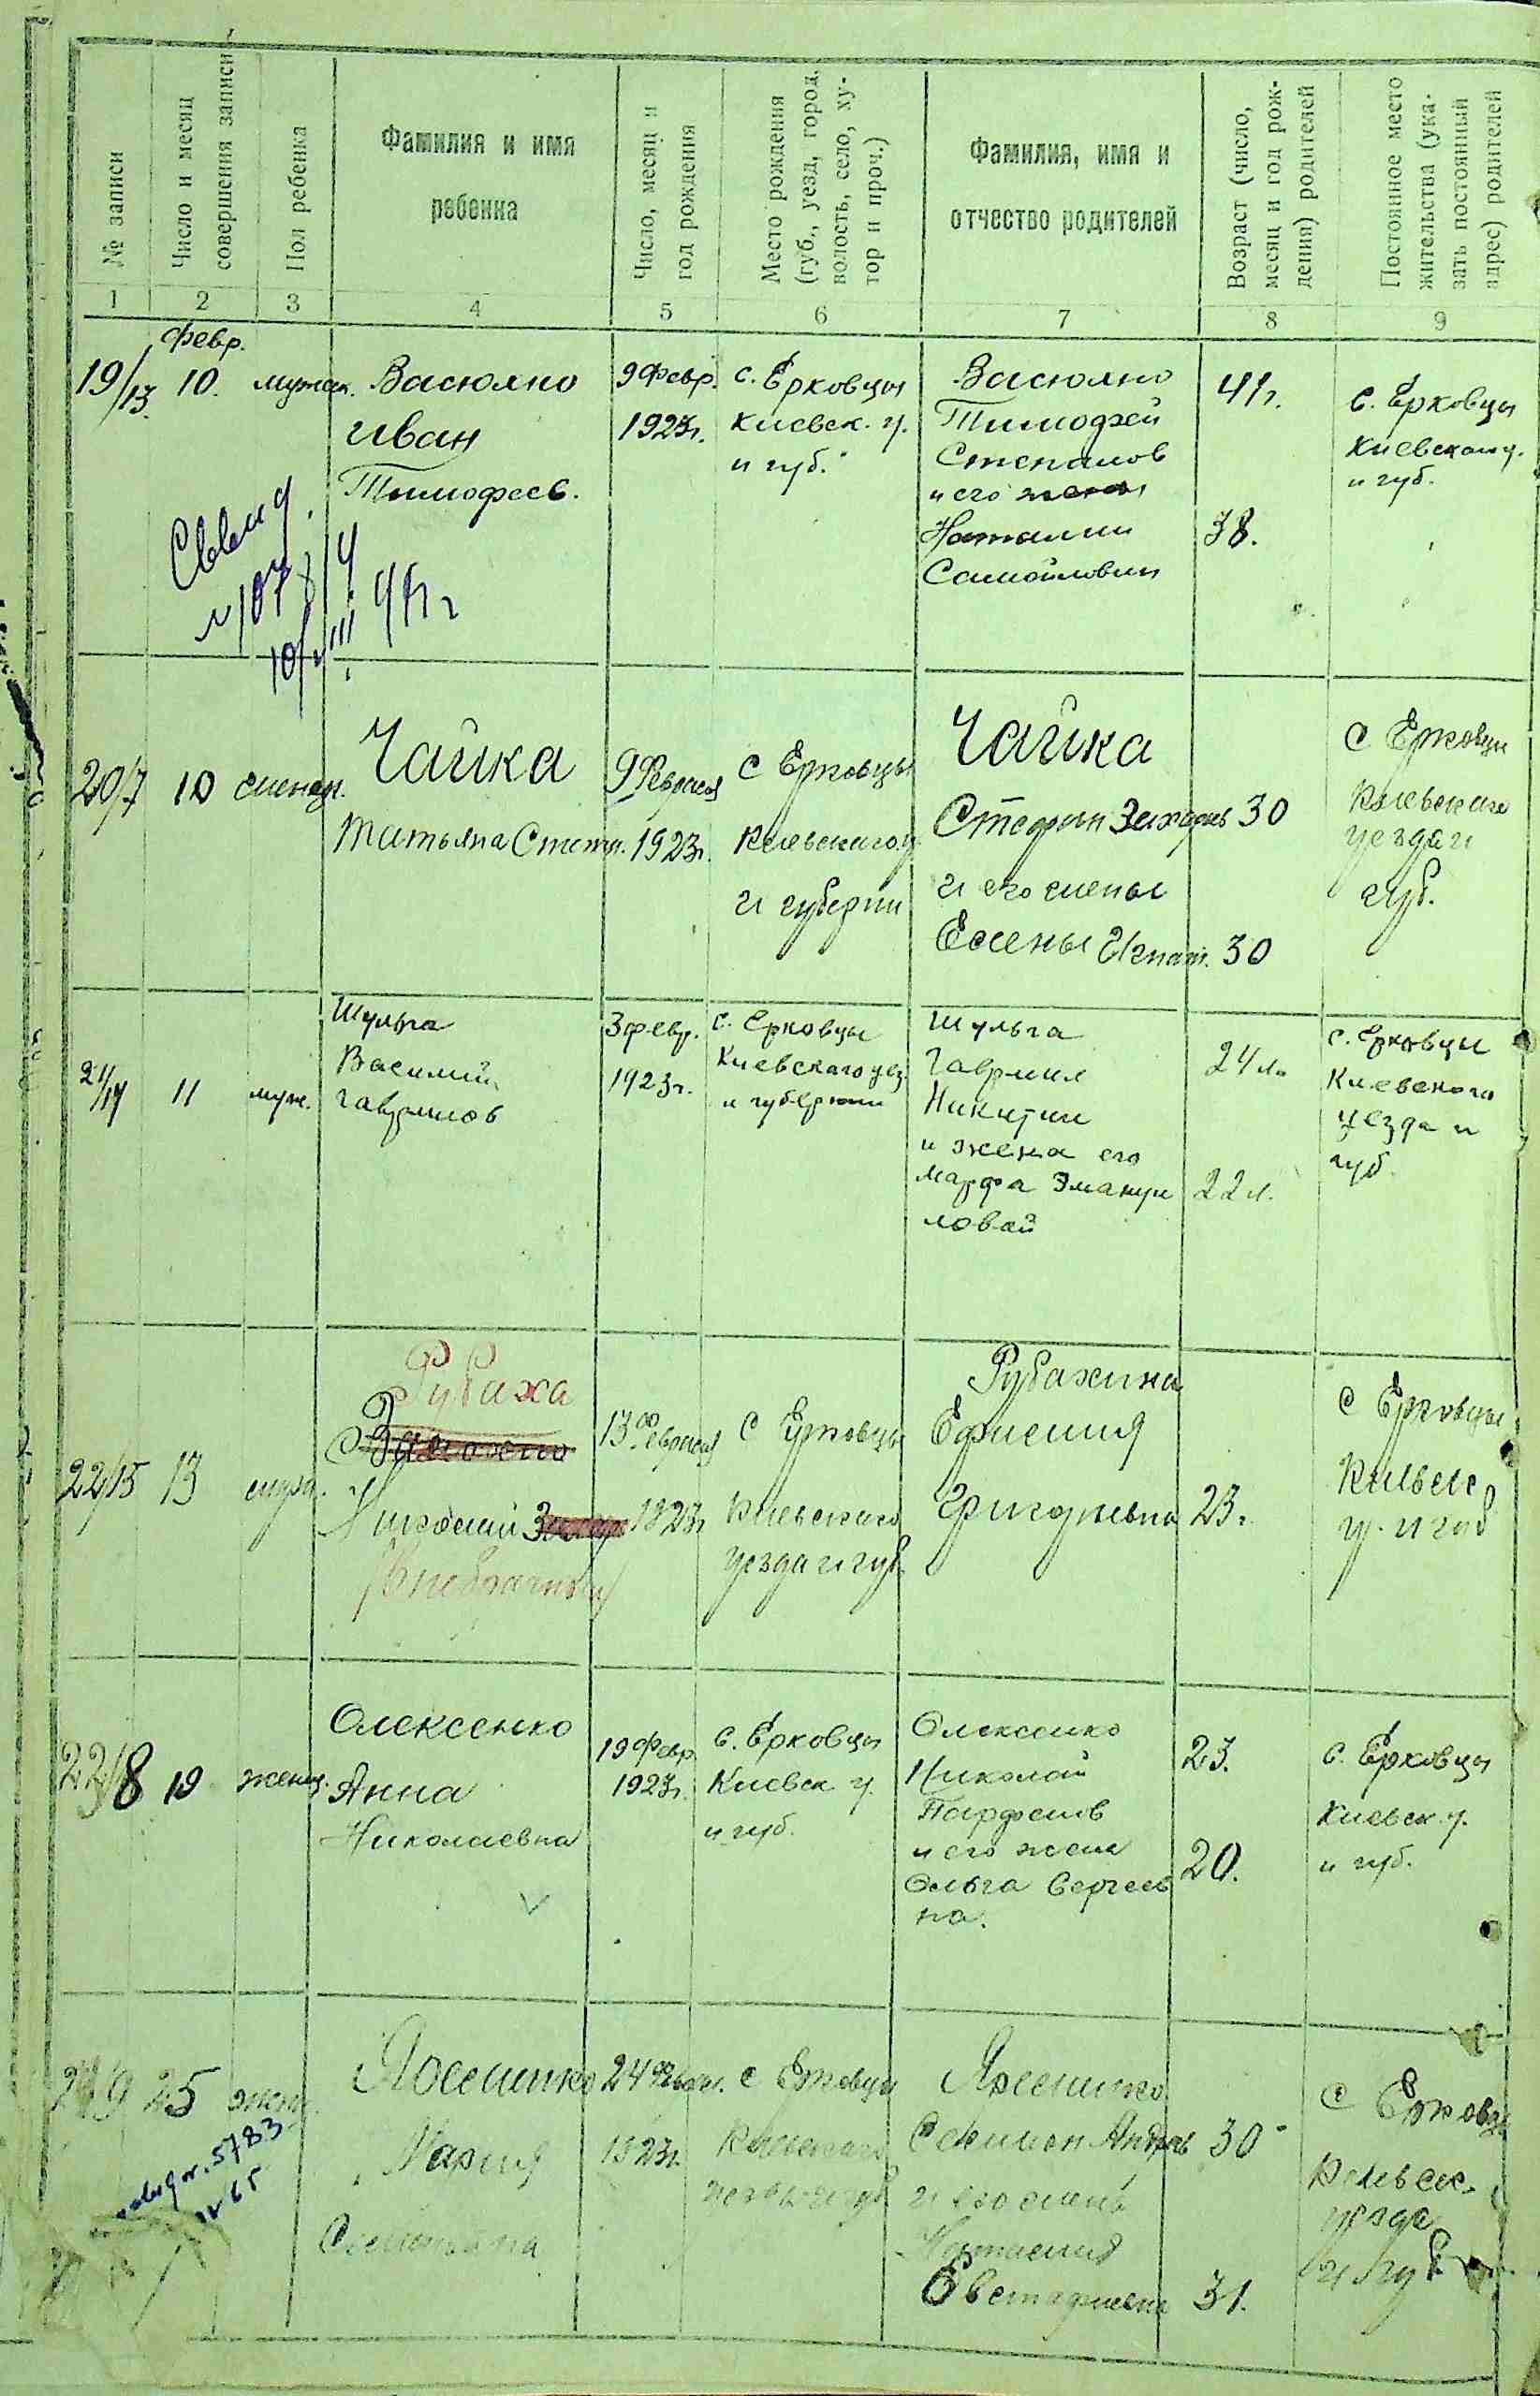 № записи
Число и месяц
совершения записи
Пол ребенка
Фамилия и имя
ребенка
Число, месяц и
год рождения
Место рождения
(губ., уезд, город,
волость, село, ху-
тор и проч.)
Фамилия, имя и
отчество родителей
Возраст (число,
месяц и год рож-
дения) родителей
Постоянное место
жительства (ука-
зать постоянный
адрес) родителей
1 2 3 4 5 6 7 8 9
Февр.
19/13. 10.
Васюхно
Иван
Тимофеев.
9 Февр.
1923г.
с. Ерковцы
Киевск. у.
и губ.
Васюхно
Тимофей
Степанов
и его жена
Наталии
Самойловны
41г.
38.
с. Ерковцы
Киевского у.
и губ.
20/7 10 женск.
Чайка
Татьяна Степан.
9 Февраля
1923г.
с Ерковцы
Киевского у.
и губернии
Чайка
Стефан Захаров
и его жены
Елены Игнат.
30
30
с Ерковцы
Киевского
уезда и
губ.
21/14 11 муж.
Шульга
Василий
Гаврилов
3 февр.
1923г.
с. Ерковцы
Киевского уез.
и губернии
Шульга
Гавриил
Никитин
и жена его
Марфа Эмануи
ловай
24 л.
22 л.
с. Ерковцы
Киевского
уезда и
губ.
22/15 13 муж.
Рубаха
Николай
(внебрачный)
13 февраля
1923г.
с Ерковцы
Киевского
уезда и губ.
Рубахина
Ефимия
Григорьевна
23.
с Ерковцы
Киевск.
у. и губ
23/8 19 женск.
Олексенко
Анна
Николаевна
19 Февр.
1923г.
с. Ерковцы
Киевск у.
и губ.
Олексенко
Николай
Парфенов
и его жена
Ольга Сергеев
на.
23.
20.
с. Ерковцы
Киевск. у.
и губ.
24/9 25
Мария
24 Февр.
1923г.
с Ерковцы
Киевского
уезда и губ.
Семион Андреев
и его жена
Наталия
Евстафиевна
30
31.
с Ерковцы
Киевск.
уезда
и губ
5783